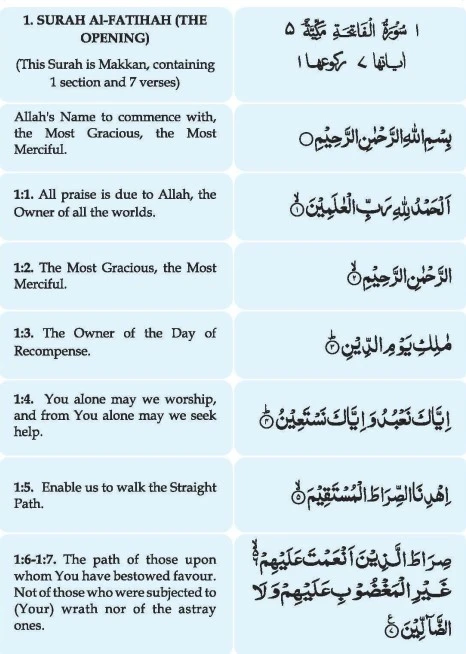 1. SURAH Al-FATIHAH (THE
OPENING)
(This Surah is Makkan, containing
1 section and 7 verses)
١ سُوْرَةُ الْفَاتِحَةِ مَكِّيَّةٌ ٥
اٰیاتھا ٧ رکوعھا ١
Allah's Name to commence with,
the Most Gracious, the Most
Merciful.
بِسْمِ اللّٰهِ الرَّحْمٰنِ الرَّحِيْمِ ○
1:1. All praise is due to Allah, the
Owner of all the worlds.
اَلْحَمْدُ لِلّٰهِ رَبِّ الْعٰلَمِيْنَ ۙ﴿١﴾
1:2. The Most Gracious, the Most
Merciful.
الرَّحْمٰنِ الرَّحِيْمِ ۙ﴿٢﴾
1:3. The Owner of the Day of
Recompense.
مٰلِكِ يَوْمِ الدِّيْنِ ؕ﴿٣﴾
1:4. You alone may we worship,
and from You alone may we seek
help.
اِيَّاكَ نَعْبُدُ وَ اِيَّاكَ نَسْتَعِيْنُ ؕ﴿٤﴾
1:5. Enable us to walk the Straight
Path.
اِهْدِنَا الصِّرَاطَ الْمُسْتَقِيْمَ ۙ﴿٥﴾
1:6-1:7. The path of those upon
whom You have bestowed favour.
Not of those who were subjected to
(Your) wrath nor of the astray
ones.
صِرَاطَ الَّذِيْنَ اَنْعَمْتَ عَلَيْهِمْ ۙ﴿٦﴾
غَيْرِ الْمَغْضُوْبِ عَلَيْهِمْ وَ لَا
الضَّآلِّيْنَ ﴿٧﴾ ع